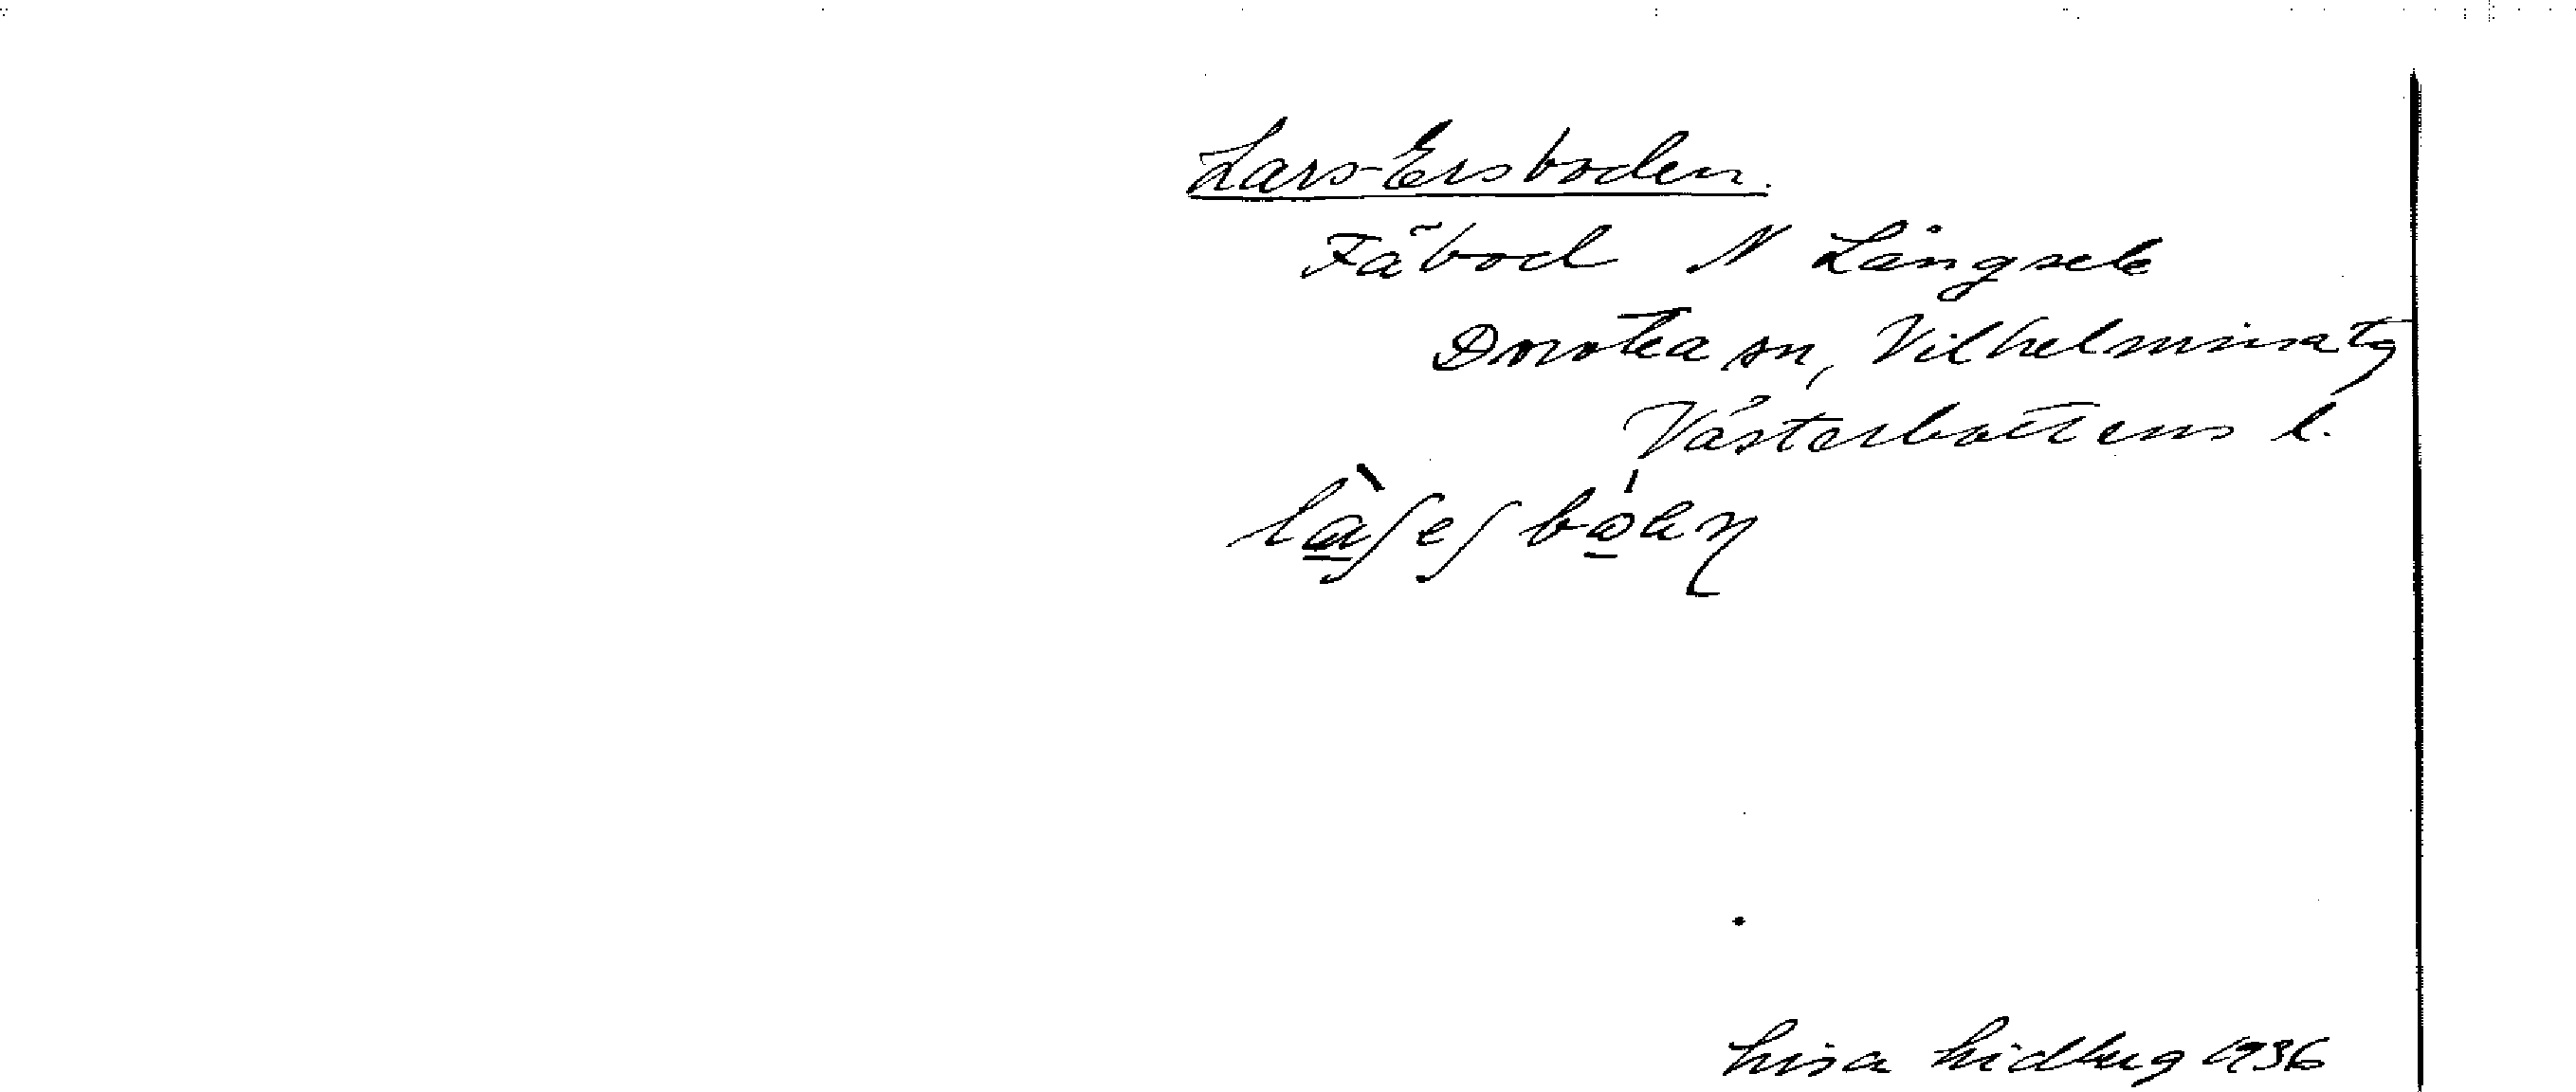 Lars-Ersboden.
Fäbod N Långsele
Dorotea sn, Vilhelmina tg
Västerbottens l.
Lisa Lidberg 1936